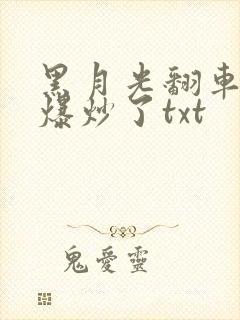 黑月光翻車
爆炒了txt
鬼愛靈